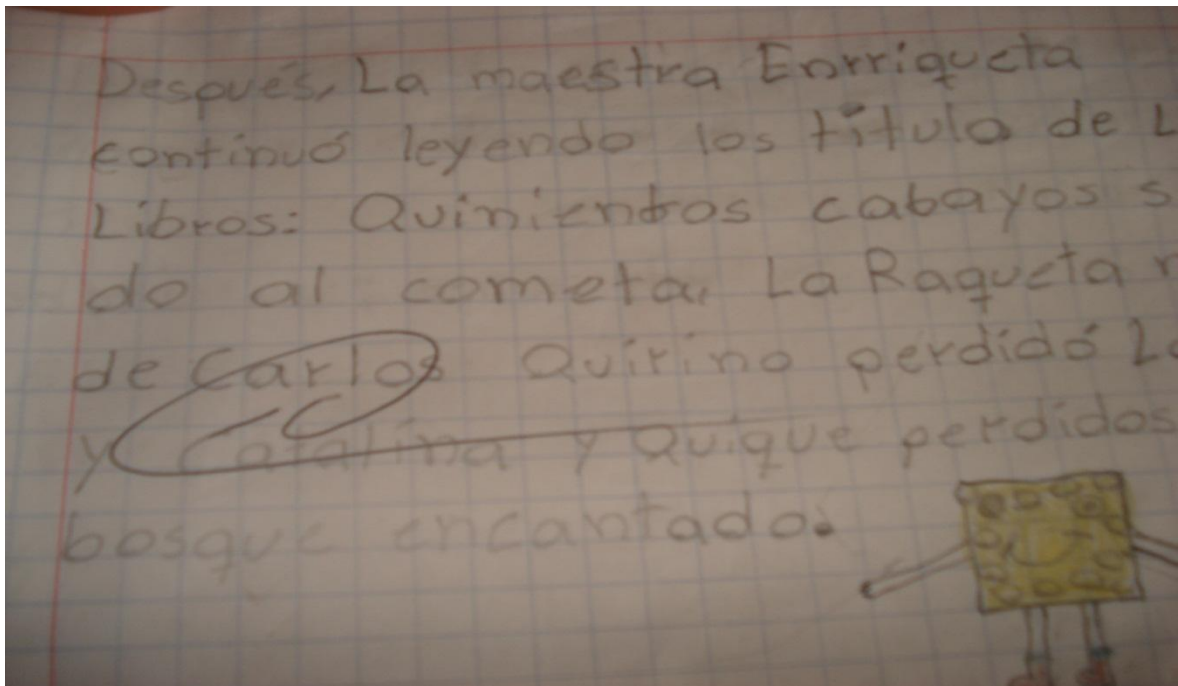 Después, La maestra Enrriqueta
continuó leyendo los título de L
Libros: Quinientos cabayos s
do al cometa, La Raqueta r
de Carlos Quirino perdidó L
y Catalina y Quique perdidos
bosque encantado.